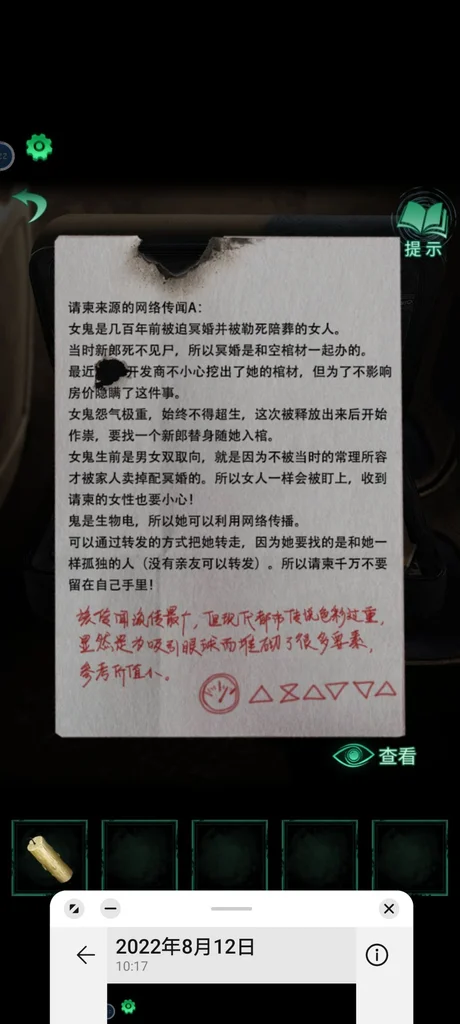 提示
请柬来源的网络传闻A:
女鬼是几百年前被迫冥婚并被勒死陪葬的女人。
当时新郎死不见尸，所以冥婚是和空棺材一起办的。
最近 开发商不小心挖出了她的棺材，但为了不影响
房价隐瞒了这件事。
女鬼怨气极重，始终不得超生，这次被释放出来后开始
作祟，要找一个新郎替身随她入棺。
女鬼生前是男女双取向，就是因为不被当时的常理所容
才被家人卖掉配冥婚的。所以女人一样会被盯上，收到
请柬的女性也要小心！
鬼是生物电，所以她可以利用网络传播。
可以通过转发的方式把她转走，因为她要找的是和她一
样孤独的人（没有亲友可以转发）。所以请柬千万不要
留在自己手里！
该传闻流传最广，但现代都市传说色彩过重，
显然是为吸引眼球而堆砌了很多要素，
参考价值小。
查看
2022年8月12日
10:17